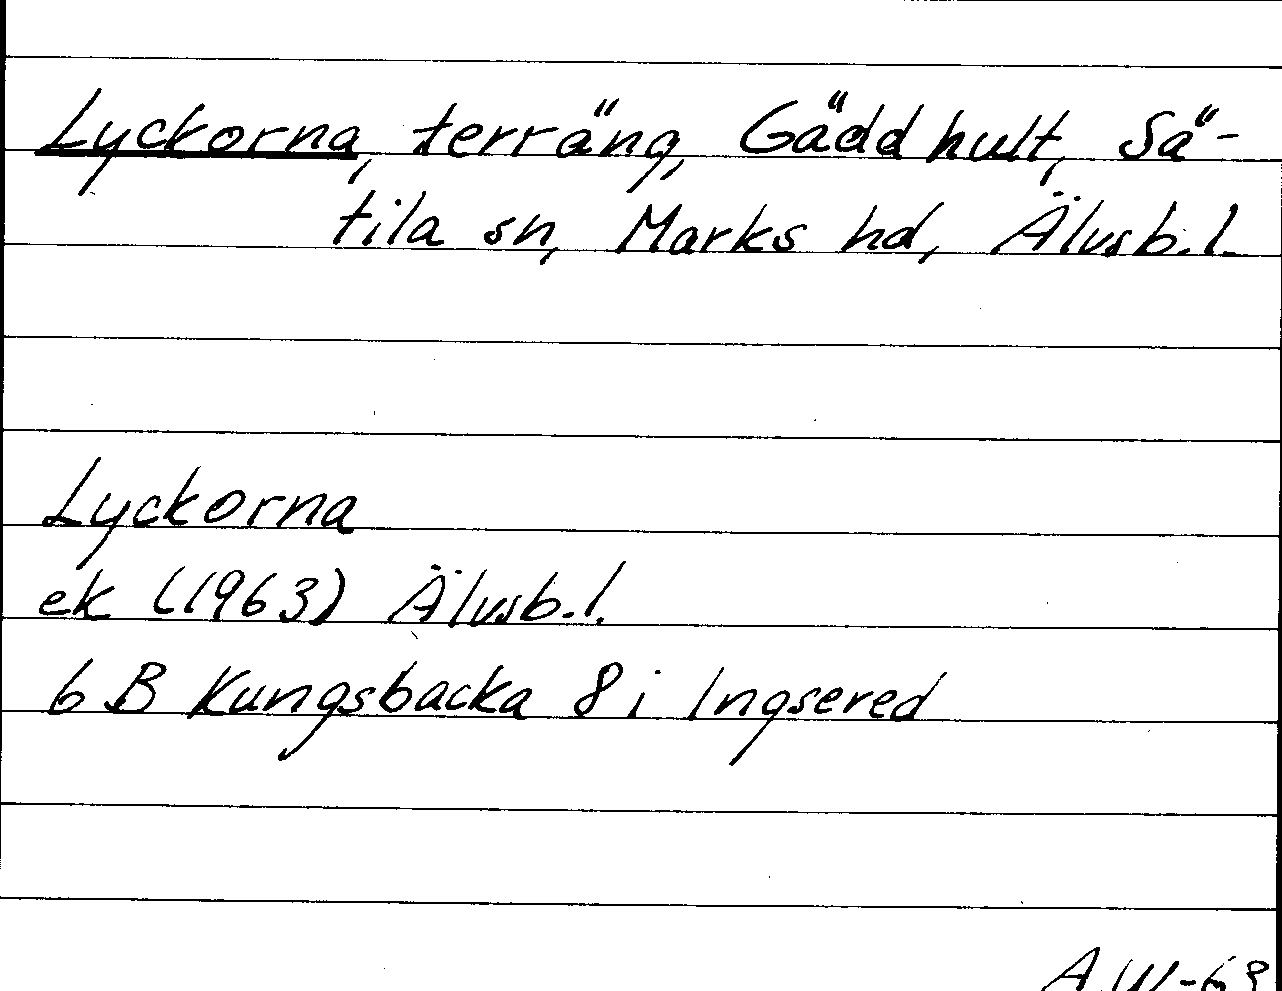 Lyckorna, terräng, Gäddhult, Sä-
tila sn, Marks hd, Älvsb.l.
Lyckorna
ek (1963) Älvsb.l.
6 B Kungsbacka 8 i Ingsered